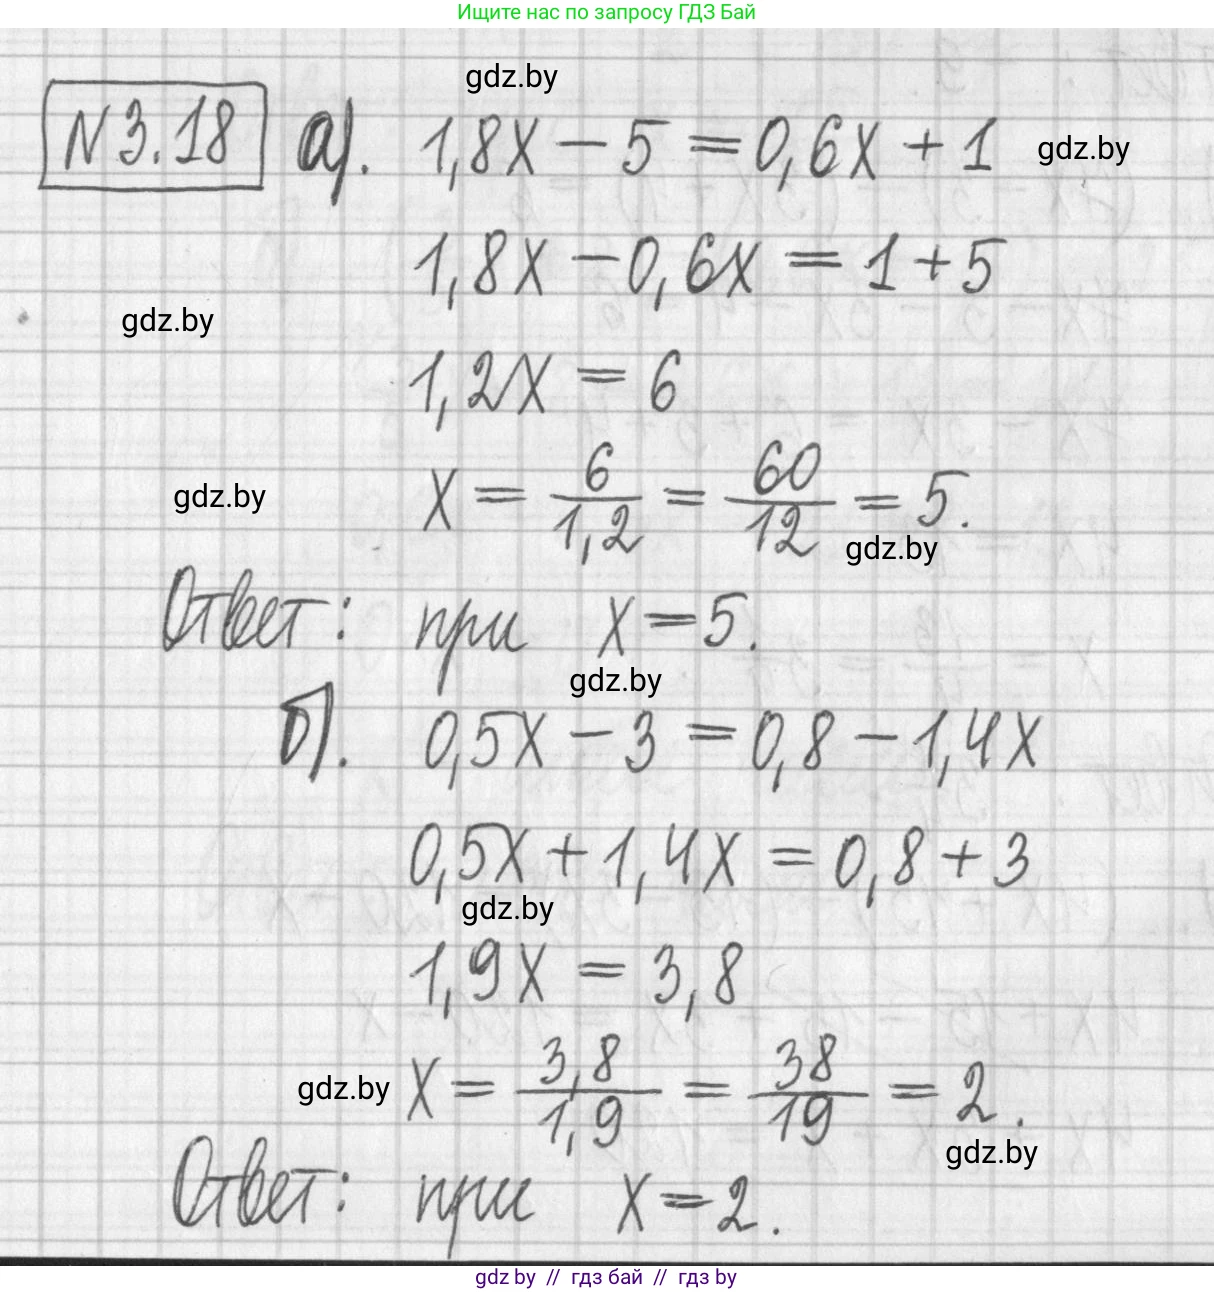 Ищите нас по запросу ГДЗ Бай
gdz.by
N3.18 а). 1,8x − 5 = 0,6x + 1
gdz.by
1,8x − 0,6x = 1 + 5
gdz.by
1,2x = 6
gdz.by
x = 6/1,2 = 60/12 = 5.
gdz.by
Ответ: при x = 5.
gdz.by
б). 0,5x − 3 = 0,8 − 1,4x
0,5x + 1,4x = 0,8 + 3
gdz.by
1,9x = 3,8
gdz.by
x = 3,8/1,9 = 38/19 = 2.
gdz.by
Ответ: при x = 2.
gdz by // гдз бай // гдз by